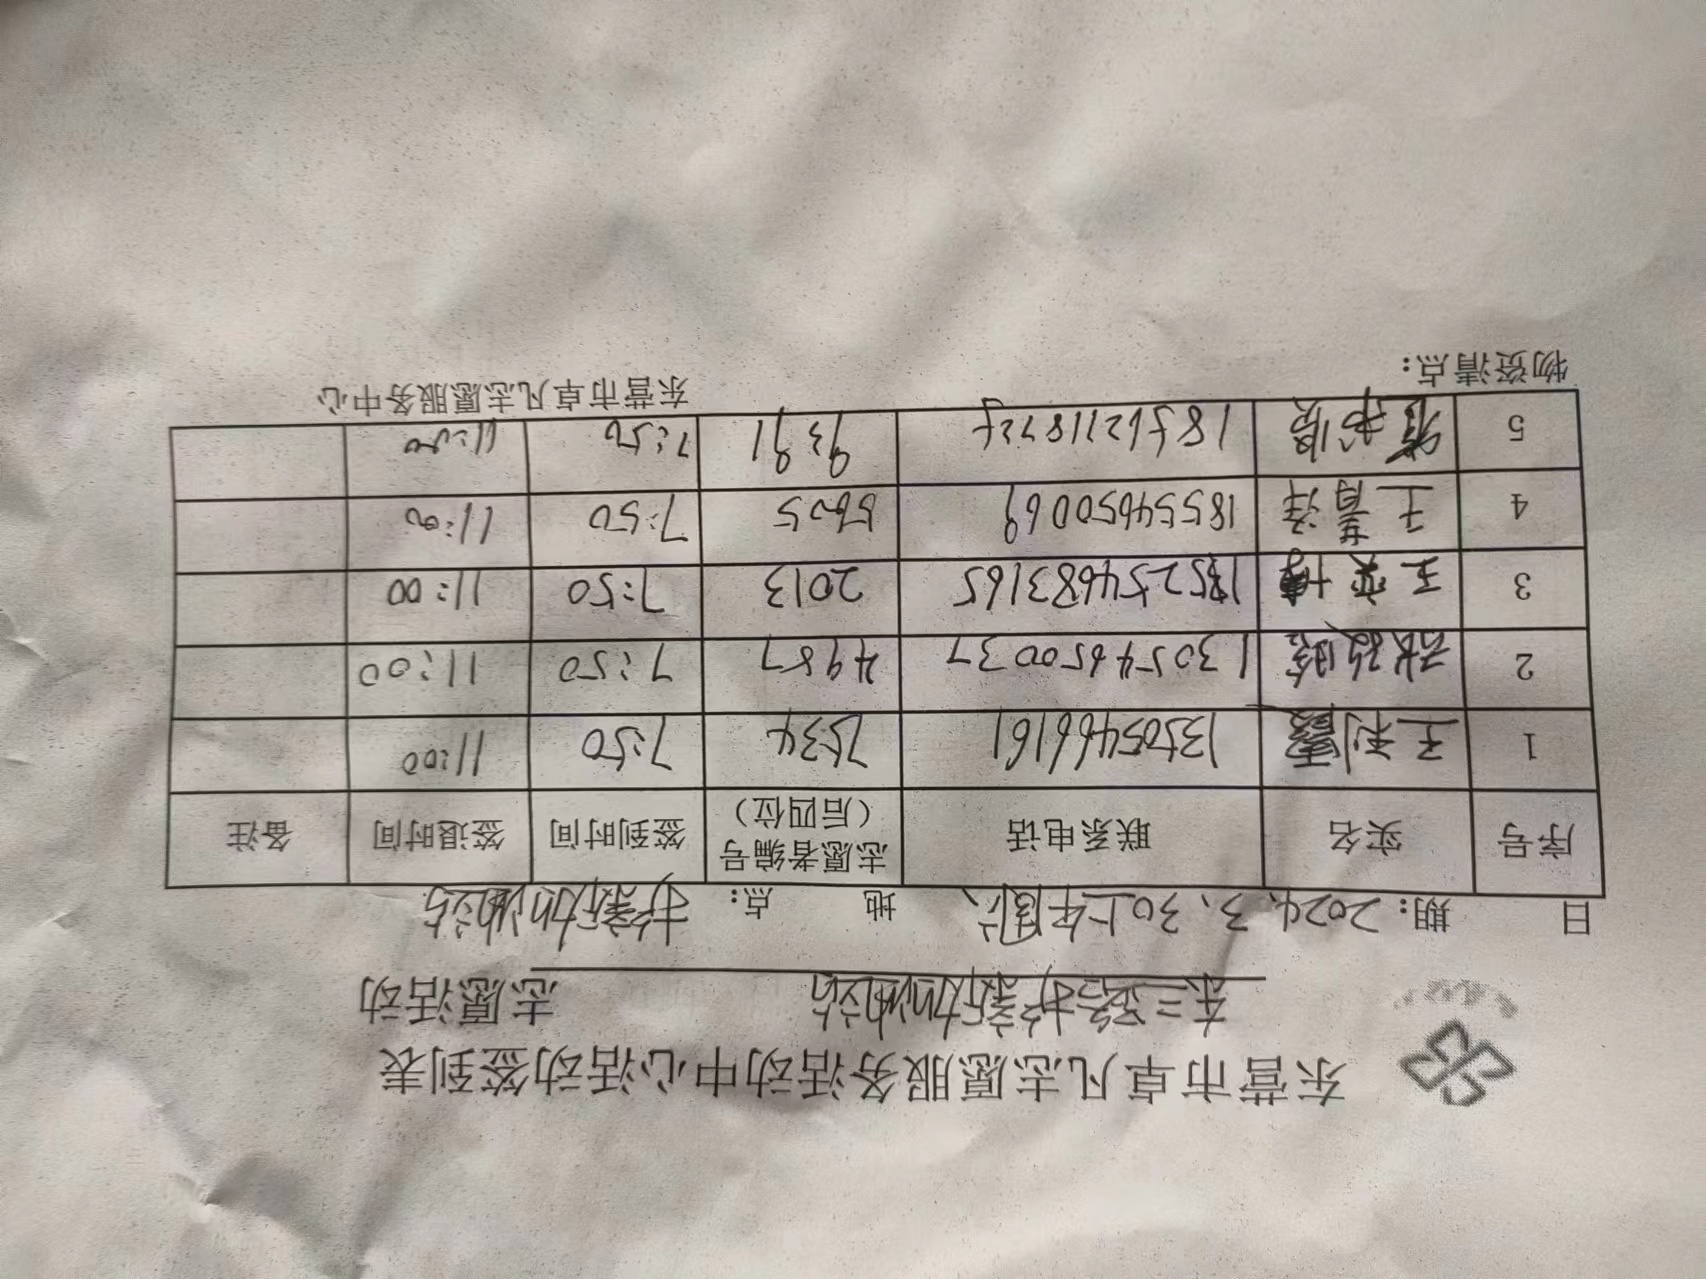 东营市卓凡志愿服务活动中心活动签到表
东三路护新加油站 志愿活动
日 期：2024、3、30上午 地 点：护新加油站
序号 实名 联系电话 志愿者编号（后四位） 签到时间 签退时间 备注
1 王利霞 13505466161 7534 7:50 11:00
2 13054650037 4987 7:50 11:00
3 王奕博 15254683165 2013 7:50 11:00
4 王 洋 18554650069 5605 7:50 11:00
5 9391 7:50 11:00
物资清点： 东营市卓凡志愿服务中心